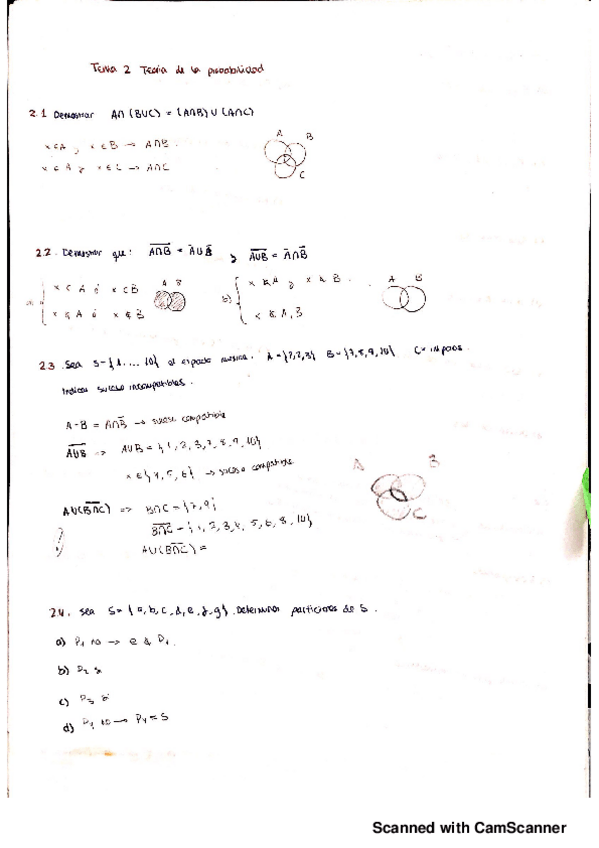 Tema 2 Teoria de la probabilidad
2.1 Demostrar A∩(B∪C) = (A∩B)∪(A∩C)
x∈A y x∈B → A∩B.
x∈A y x∈C → A∩C
A B C
2.2. Demostrar que: A̅∩̅B̅ = A̅∪B̅ y A̅∪̅B̅ = A̅∩B̅
x∈A ó x∈B
A B
b) x∉A y x∉B.
A B
x∉A ó x∉B
x∉A,B
2.3 Sea S={1....10} el espacio muestral. A={1,2,3} B={7,8,9,10} C=impares
Indicar suceso incompatibles.
A-B = A∩B̅ → suceso compatible
A̅∪̅B̅ => A∪B = {1,2,3,7,8,9,10}
x∈{4,5,6} → suceso compatible
A B C
A∪(B̅∩̅C̅) => B∩C = {7,9}
B̅∩̅C̅ = {1,2,3,4,5,6,8,10}
A∪(B̅∩̅C̅) =
2.4. Sea S={a,b,c,d,e,f,g}. Determinar particiones de S.
a) P₁ no → e∉P₁.
b) P₂ si
c) P₃ si
d) P₄ no → P₄=S
Scanned with CamScanner